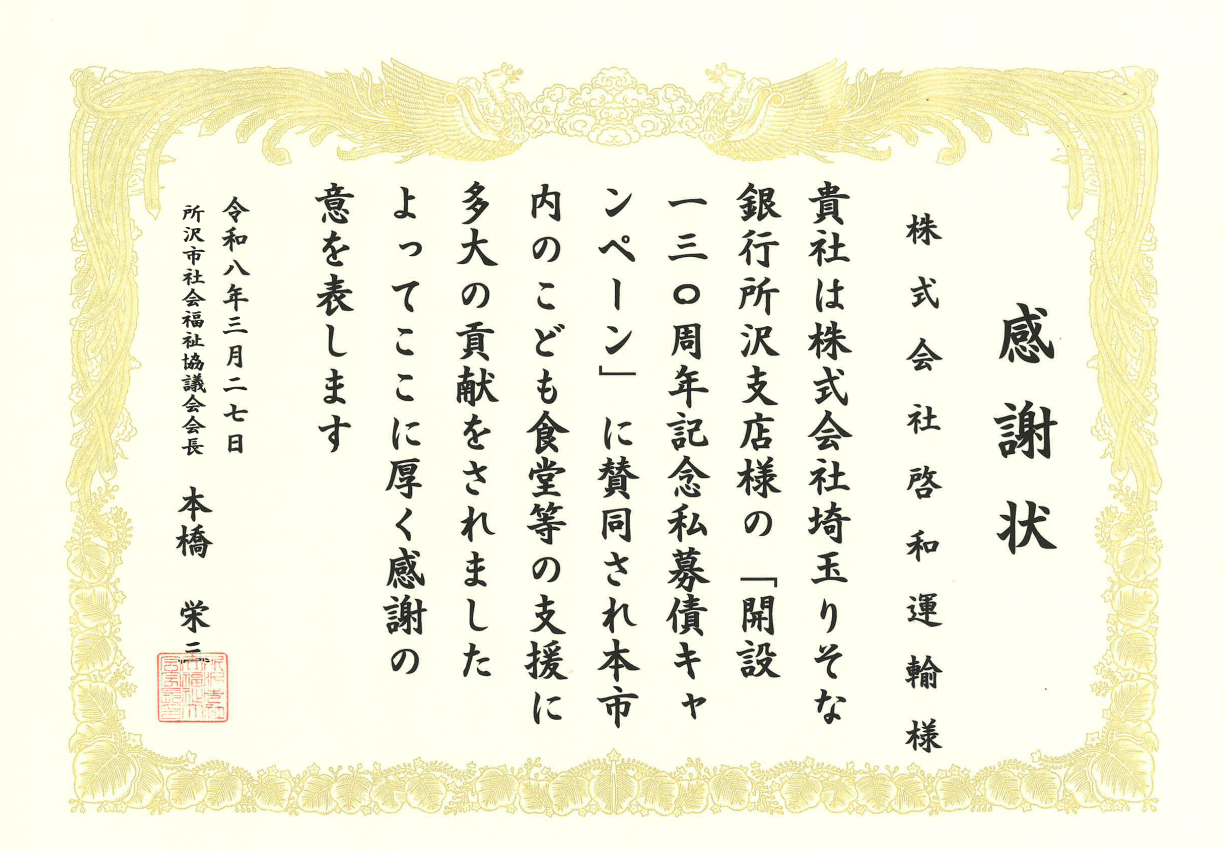 感謝状
株式会社啓和運輸様
貴社は株式会社埼玉りそな
銀行所沢支店様の「開設
一三〇周年記念私募債キャ
ンペーン」に賛同され本市
内のこども食堂等の支援に
多大の貢献をされました
よってここに厚く感謝の
意を表します
令和八年三月二七日
所沢市社会福祉協議会会長 本橋 栄三